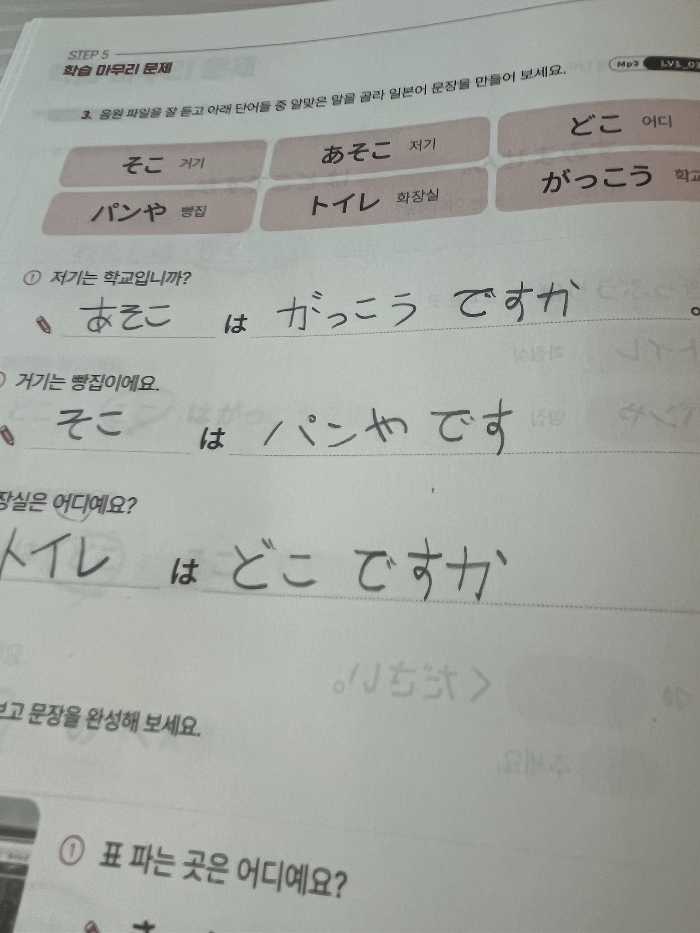 STEP 5
학습 마무리 문제
Mp3 LV1_03
3. 음원 파일을 잘 듣고 아래 단어들 중 알맞은 말을 골라 일본어 문장을 만들어 보세요.
そこ 거기 あそこ 저기 どこ 어디
パンや 빵집 トイレ 화장실 がっこう 학교
① 저기는 학교입니까?
あそこ は がっこう ですか 。
거기는 빵집이에요.
そこ は パンや です
장실은 어디예요?
トイレ は どこ ですか
보고 문장을 완성해 보세요.
① 표 파는 곳은 어디예요?